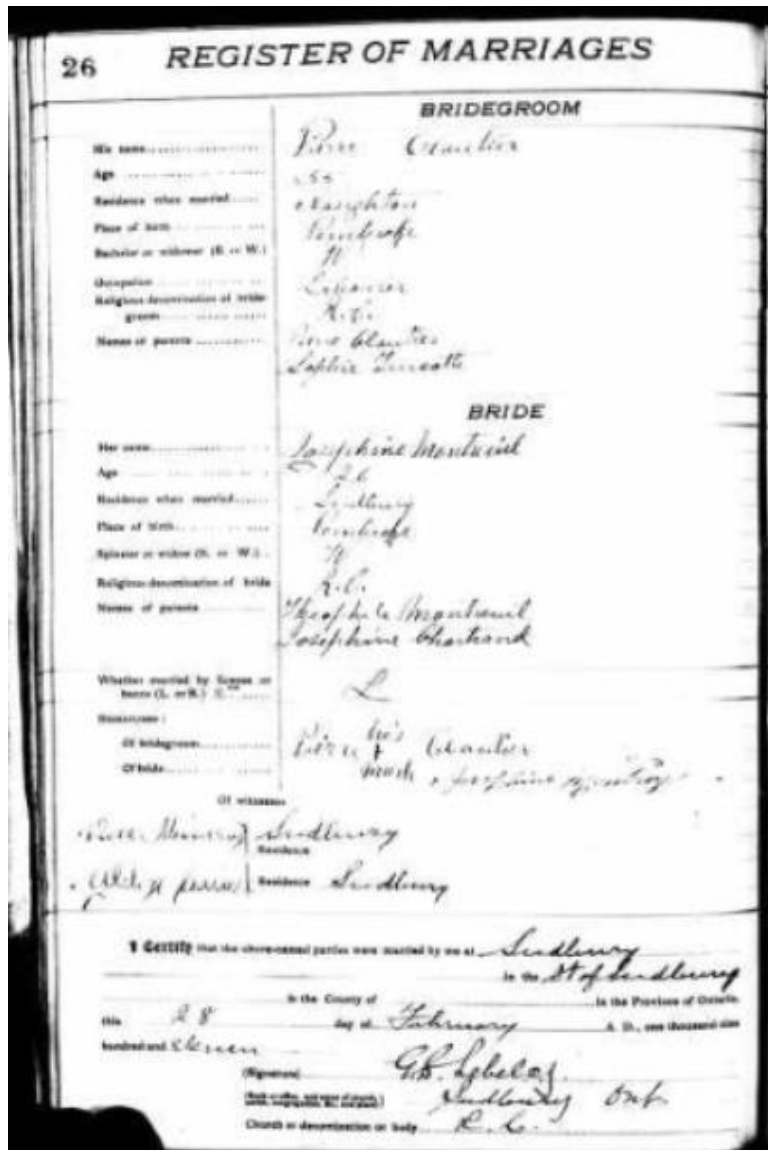 26 REGISTER OF MARRIAGES
BRIDEGROOM
His name
Age
Residence when married Craighton
Place of birth Pembroke
Bachelor or widower (B. or W.) W
Occupation Labourer
Religious denomination of bride-
groom R.C.
Names of parents Cloutier
Sophie Turcotte
BRIDE
Her name Josephine Montreuil
Age
Residence when married Sudbury
Place of birth Pembroke
Spinster or widow (S. or W.) W
Religious denomination of bride R.C.
Names of parents Theophile Montreuil
Josephine Chartrand
Whether married by license or
banns (L. or B.) L
Signatures:
his
Of bridegroom Pierre + Cloutier
Of bride mark Josephine
Of witnesses
Sudbury
Residence
Residence Sudbury
I Certify that the above-named parties were married by me at Sudbury
in the Dt of Sudbury
in the County of in the Province of Ontario.
this 28 day of February A. D., one thousand nine
hundred and eleven
(Signature)
Sudbury Ont
Church or denomination or body R.C.